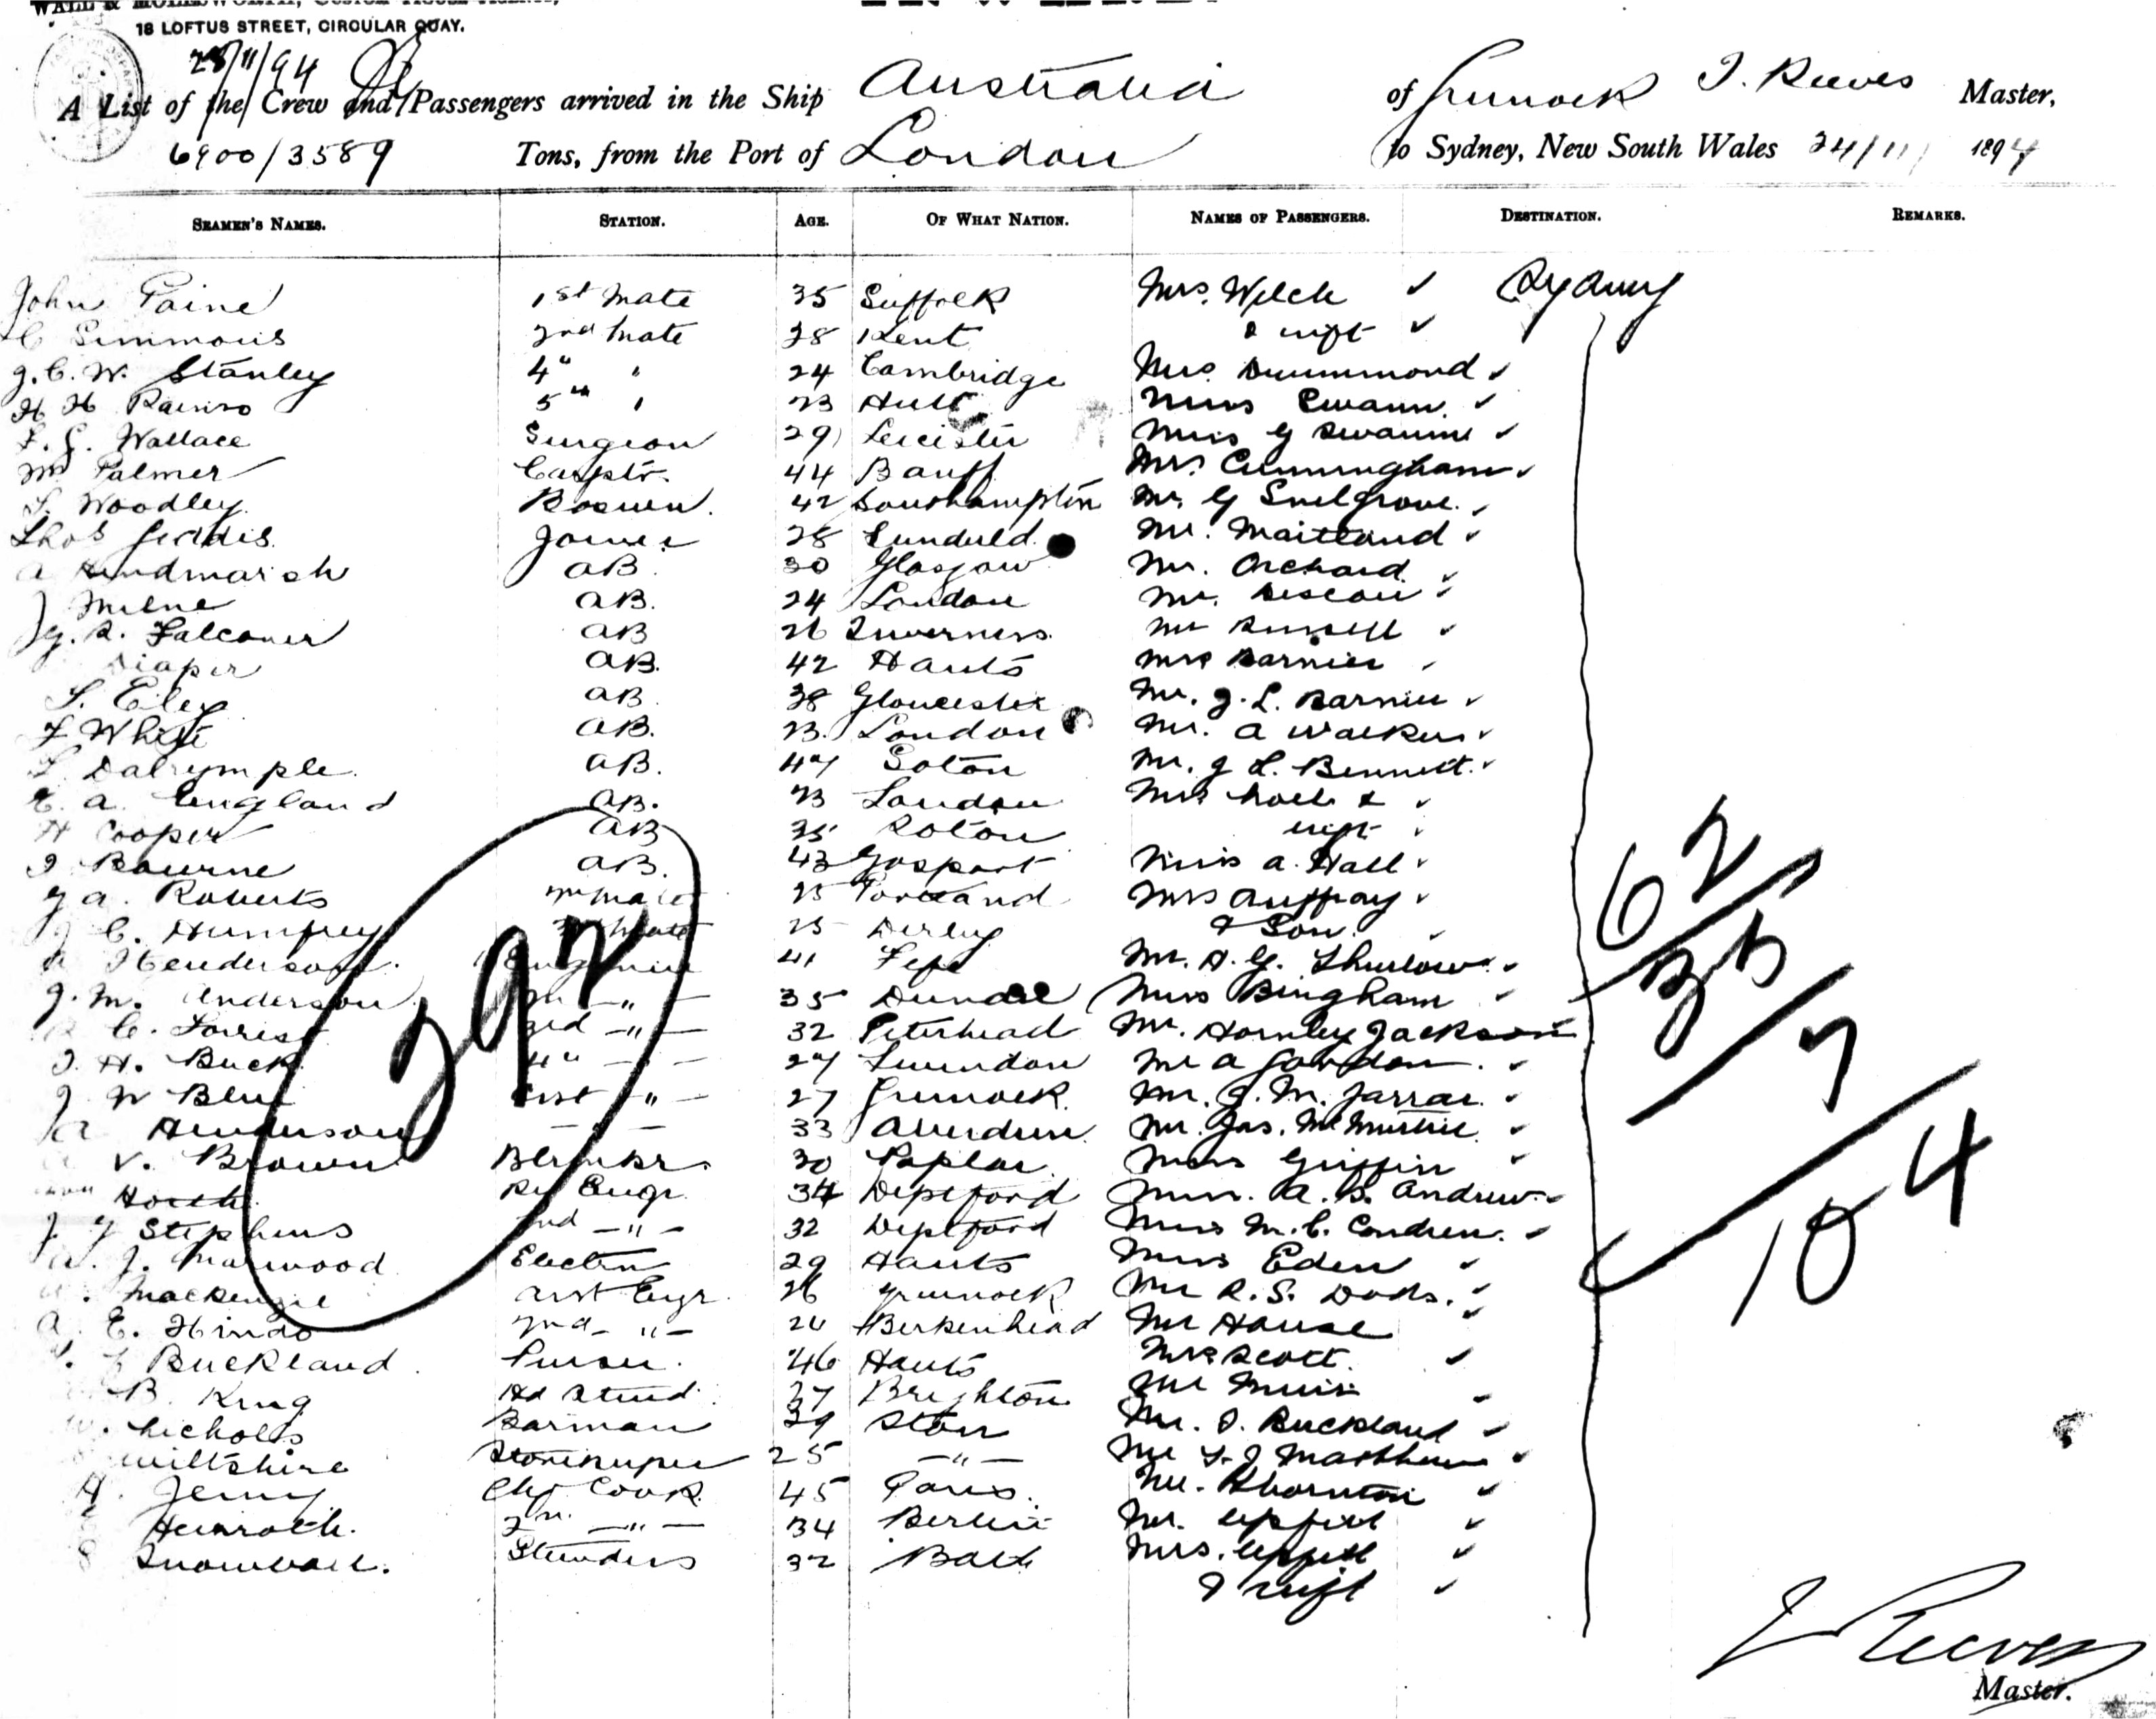 WALL & MOLESWORTH, CUSTOM HOUSE AGENTS,
18 LOFTUS STREET, CIRCULAR QUAY.
28/11/94
A List of the Crew and Passengers arrived in the Ship Australia of Greenock J. Reeves Master,
6900/3589 Tons, from the Port of London to Sydney, New South Wales 24/11/ 1894
SEAMEN'S NAMES. STATION. AGE. OF WHAT NATION. NAMES OF PASSENGERS. DESTINATION. REMARKS.
John Paine 1st Mate 35 Suffolk Mrs. Welch ✓ Sydney
C Simmons 2nd Mate 28 Kent & inft ✓
J. C. W. Stanley 4" " 24 Cambridge Drummond ✓
H H 5th " 23 Hull Miss Swann ✓
F. G. Wallace Surgeon 29 Leicester Miss G Swann ✓
Palmer Carptr. 44 Banff Cunningham ✓
Woodley Boswn. 42 Southampton Mr. G Snelgrove ✓
Thos Geddis Joiner 28 Sunderld. Mr. Maitland ✓
A Hindmarsh AB 30 Glasgow Mr. Orchard ✓
J Milne AB. 24 London Mr. ✓
G. S. Falconer AB 26 Inverness Mr Russell ✓
Diaper AB. 42 Hants Mrs Barnier ✓
S. Eley AB 38 Gloucester Mr. J. L. Barnier ✓
F White AB. 23. London Mr. A Walker ✓
Dalrymple AB. 47 Soton Mr. J L. Bennett ✓
E. A. England AB. 23 London & ✓
H Cooper AB 35 Soton inft ✓
J Bourne AB. 43 Gosport Miss A. Hall ✓
G A. Roberts 25 Portland Mrs ✓
J C. Humfrey 25 Derby & Son ✓
A Henderson 41 Fife Mr. A. G. Thurlow ✓
J. M. Anderson 2n " 35 Dundee Miss Bingham ✓
C. Forrest 3rd " 32 Peterhead Mr. Hornley Jackson
J. H. Buck 4" " 27 Swindon Mr A Gordon ✓
J W Blue asst " 27 Greenock Mr. J. M. Jarrar ✓
A Henderson " 33 Aberdeen Mr. Jas. ✓
V. Brown Blrmkr. 30 Poplar Miss Griffin ✓
Rf Engr 34 Deptford A. B. Andrew ✓
J G Stephens 2nd " 32 Deptford Miss M. C. ✓
J. Marwood Electn 29 Hants Miss Eden ✓
Mackenzie asst Engr. 26 Greenock Mr R. S. ✓
A. E. Hinds 2nd " 24 Berkenhead Mr House ✓
Buckland Purser. 46 Hants Mrs Scott. ✓
B. King Hd Stewd. 37 Brighton Mr Muir ✓
Nicholls Barman 39 Ston Mr. J. Buckland ✓
Wiltshire Storekeeper 25 " Mr ✓
H. Jenny Chf Cook 45 Paris. Mr. Thornton ✓
Heinroth. 2n. " 34 Berlin Mr. Uppill ✓
Snowball. Stewards 32 Bath Mrs. Uppill ✓
& inft ✓
292
62
35
7
104
J Reeves
Master.